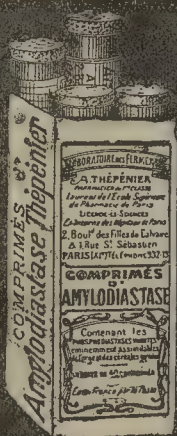 COMPRIMÉS D'
Amylodiastase Thépénier
LABORATOIRE DES FERMENTS
A. THÉPÉNIER
PHARMACIEN DE 1re CLASSE
Lauréat de l'École Supérieure
de Pharmacie de Paris
LICENCIÉ ÈS SCIENCES
des Hôpitaux de Paris
2, Boul.t des Filles du Calvaire
& 1, Rue St Sébastien
PARIS
COMPRIMÉS
D'
AMYLODIASTASE
Contenant les
DIASTASES
éminemment assimilables
de l'orge et des céréales germées